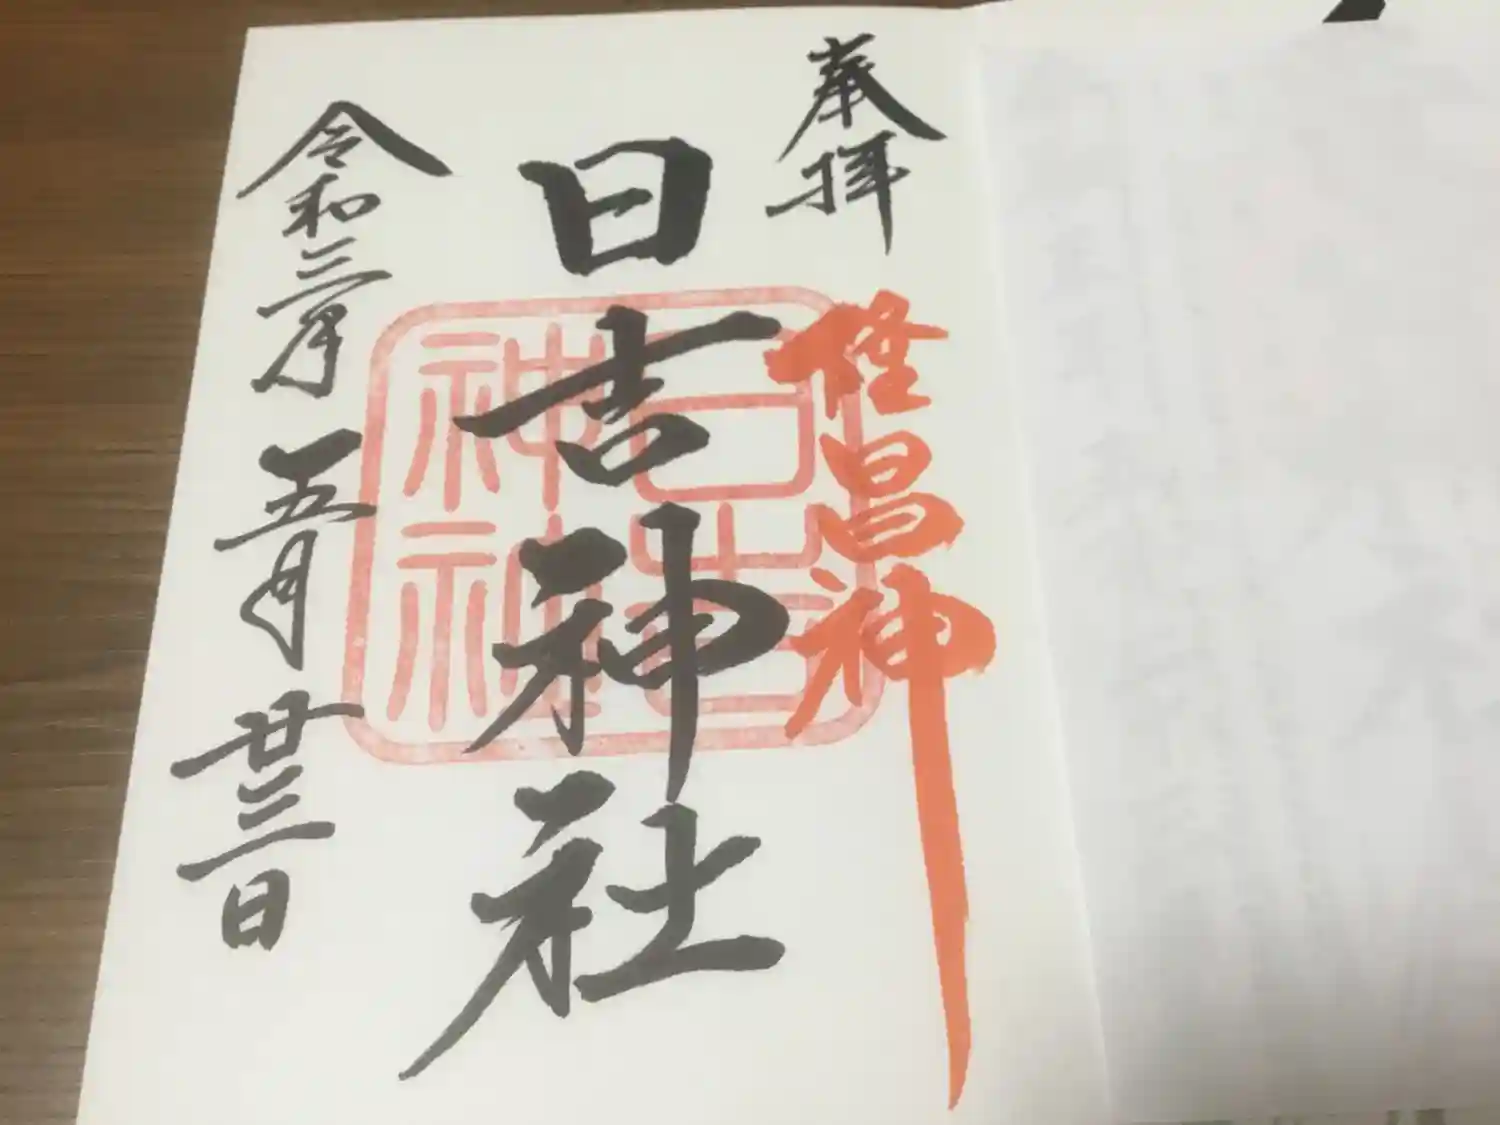 奉拝
昌神
日吉神社
日吉
神社
令和三年 五月 廿三日